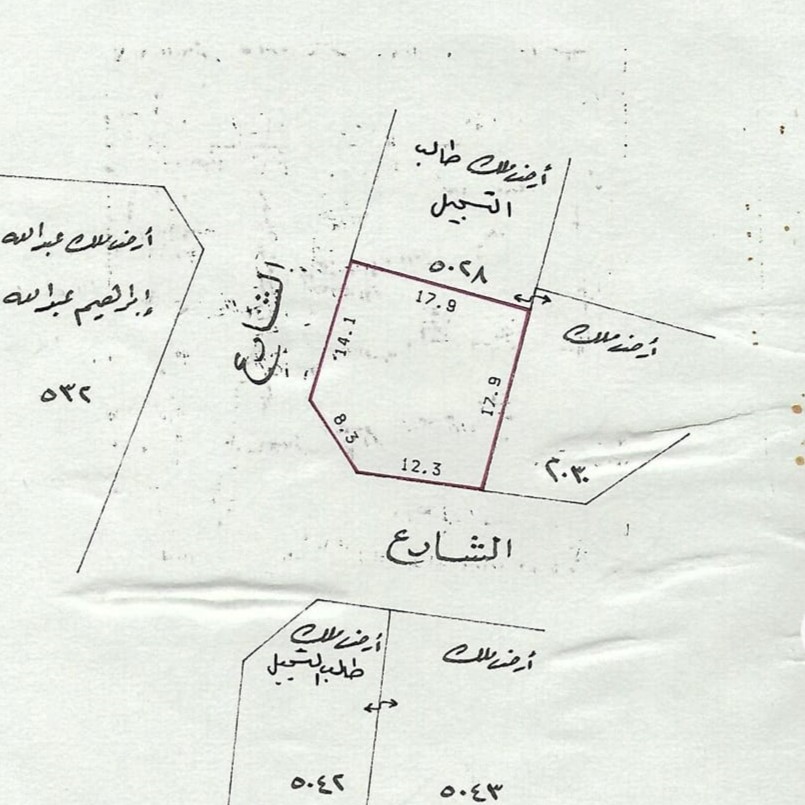 أرض ملك طالب
التسجيل
٥٠٢٨
17.9
أرض ملك عبدالله
إبراهيم عبدالله
٥٣٢
الشارع
14.1
8.3
12.3
17.9
أرض ملك
٢٠٣٠
الشارع
أرض ملك
طالب التسجيل
٥٠٤٢
أرض ملك
٥٠٤٣